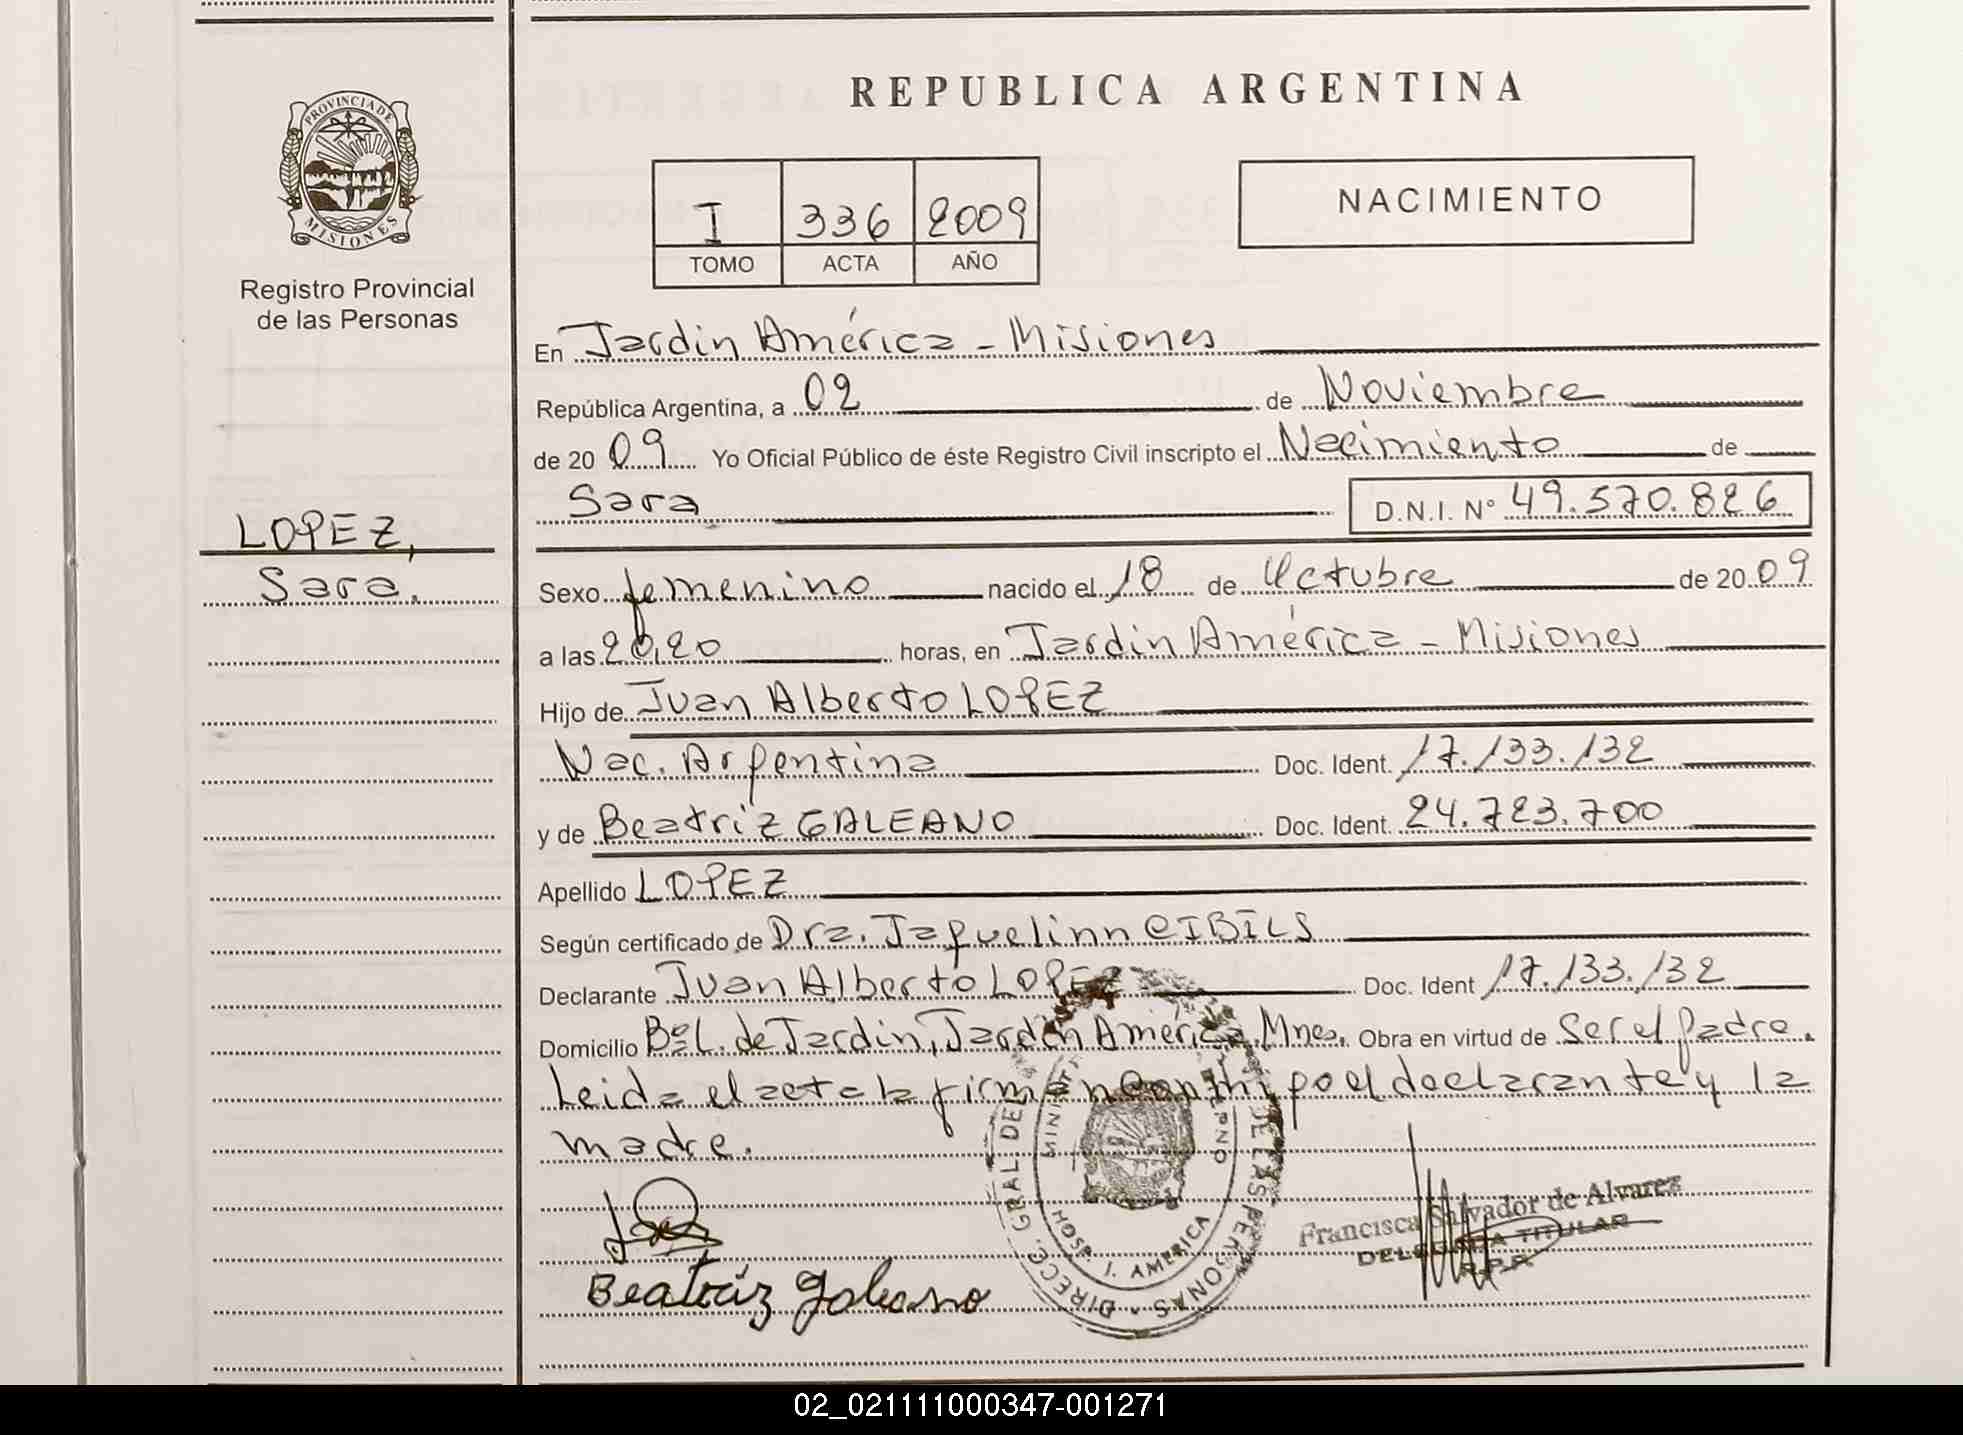 PROVINCIA DE
MISIONES
Registro Provincial
de las Personas
LOPEZ,
Sara.
REPUBLICA ARGENTINA
I 336 2009
TOMO ACTA AÑO
NACIMIENTO
En Jardin América - Misiones
República Argentina, a 02 de Noviembre
de 20 09 Yo Oficial Público de éste Registro Civil inscripto el Nacimiento de
Sara D.N.I. Nº 49.570.826
Sexo femenino nacido el 18 de Octubre de 20 09
a las 20,20 horas, en Jardin América - Misiones
Hijo de Juan Alberto LOPEZ
Nac. Argentina Doc. Ident. 17.133.132
y de Beatriz GALEANO Doc. Ident. 24.723.700
Apellido LOPEZ
Según certificado de Dra. Jaquelinn CIBILS
Declarante Juan Alberto LOPEZ Doc. Ident 17.133.132
Domicilio Bº L. de Jardin, Jardin América, Mnes. Obra en virtud de Ser el padre.
Leida el acta la firman conmi po el declarante y la
madre.
DIRECC. GRAL DE LAS PERSONAS
HOSP. J. AMERICA
Francisca Salvador de Alvarez
DELEGADA TITULAR
R.P.P.
Beatriz Galeano
02_021111000347-001271